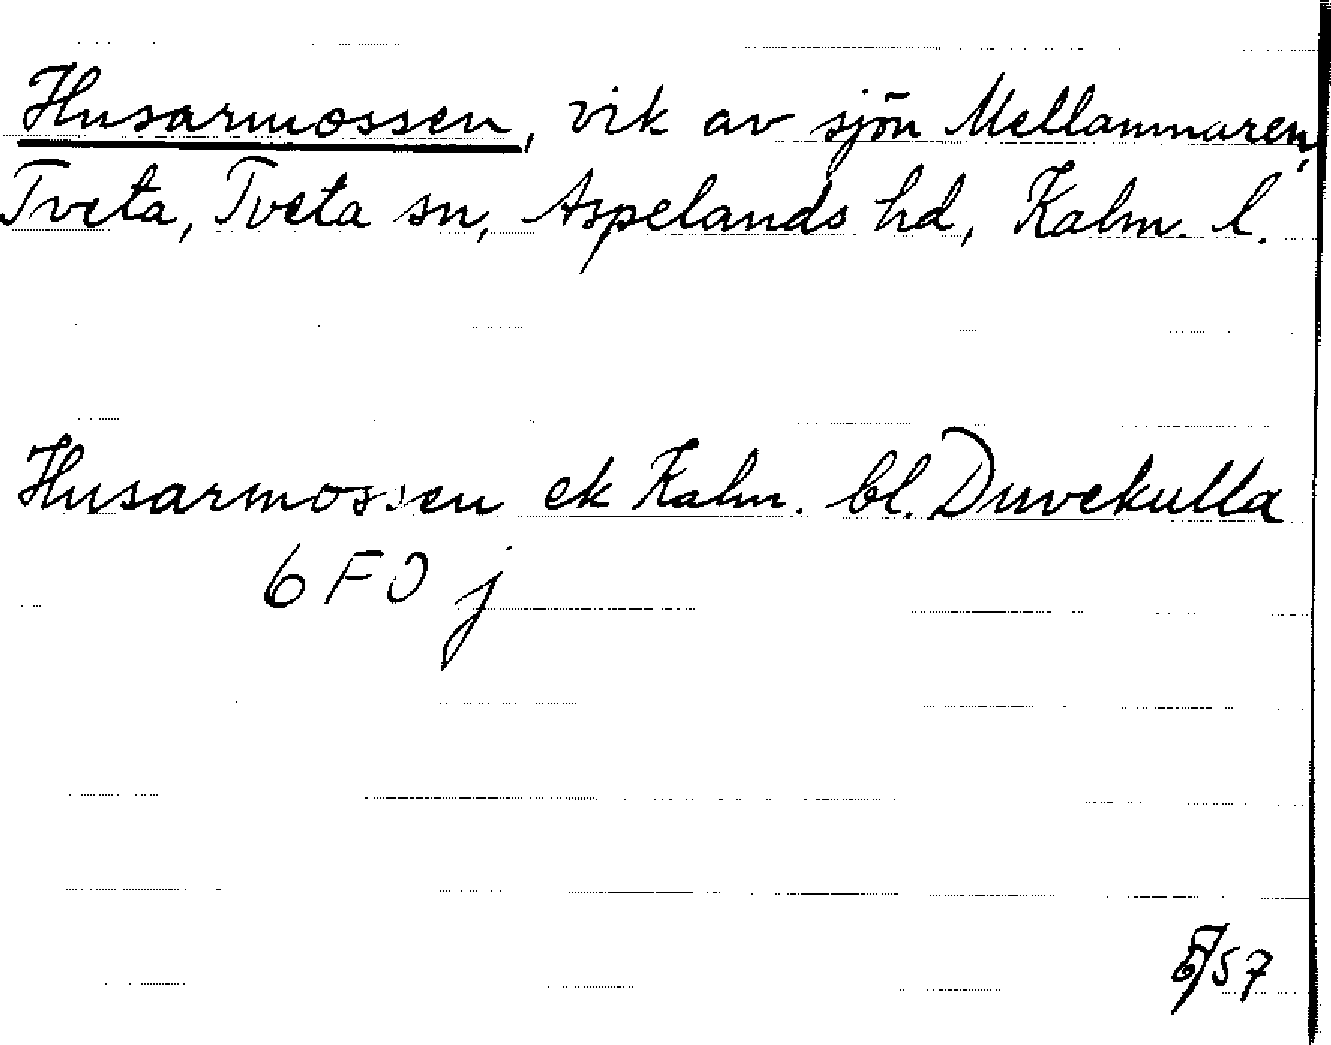 Husarmossen, vik av sjön Mellanmaren,
Tveta, Tveta sn, Aspelands hd, Kalm. l.
Husarmossen ek Kalm. bl. Duvekulla
6 F 0 j
/57